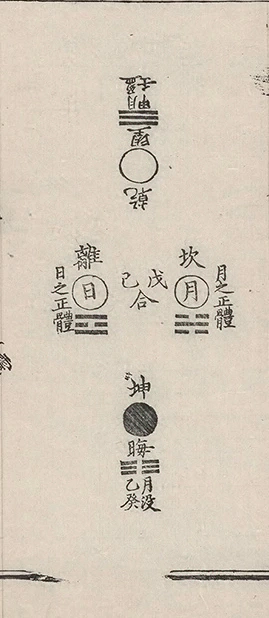 乾
望
月盈
甲壬
坎
月
月之正體
戊己
合
離
日
日之正體
坤
晦
月没
乙癸